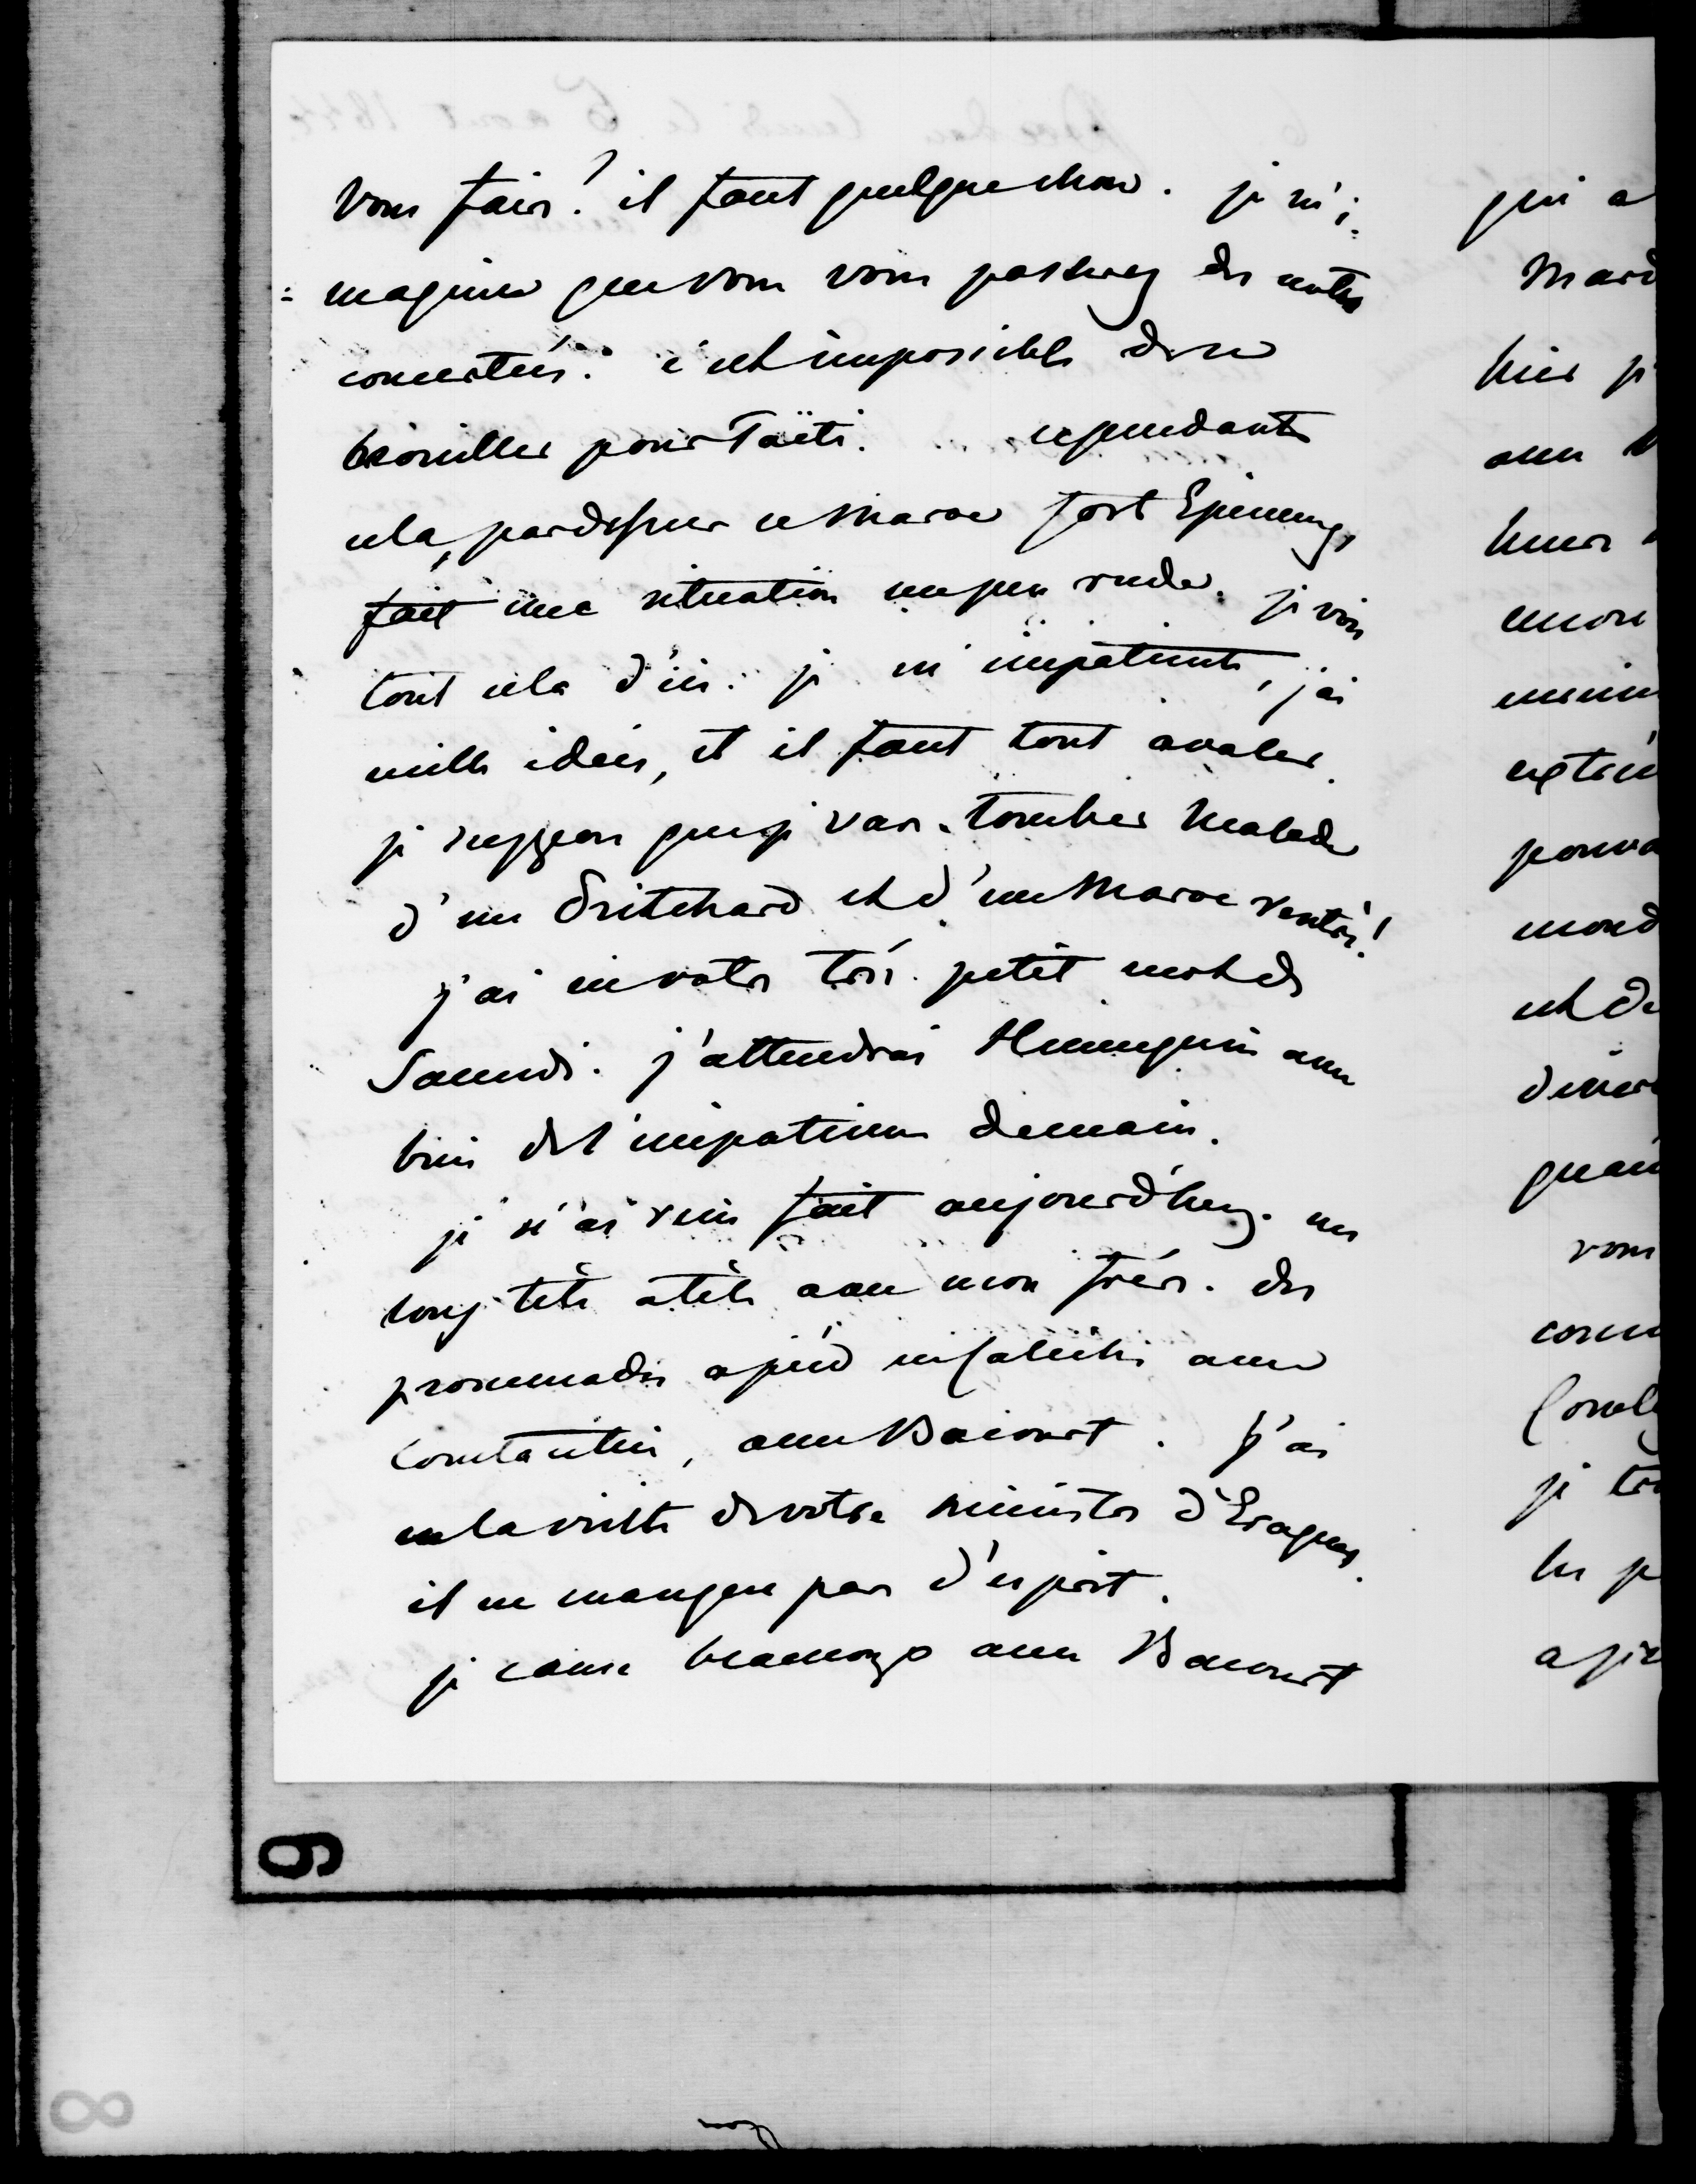 vous faire? il faut quelque chose. je m'i=
=magine que vous vous passerez des notes
concertées. c'est impossible de se
brouiller pour Taïti. cependant
cela, pardessus ce Maroc fort Epineux,
fait une situation un peu rude. je vois
tout cela d'ici. je m'impatiente, j'ai
mille idées, et il faut tout avaler.
je suppose que je vais tomber malade
d'un Pritchard et d'un Maroc rentrés!
j'ai eu votre très petit mot de
Samedi. j'attendrai Hennequin avec
bien de l'impatience demain.
je n'ai rien fait aujourd'huy. un
long tête atête avec mon frère. des
promenades apied en calèche avec
Constantin, avec Bacourt. j'ai
eu la visite de votre ministre d'Eragues.
il ne manque pas d'esprit.
je cause beaucoup avec Bacourt
qui a
Mard
hier je
encore
pouva
mond
et de
vous
je
a pie
9
8